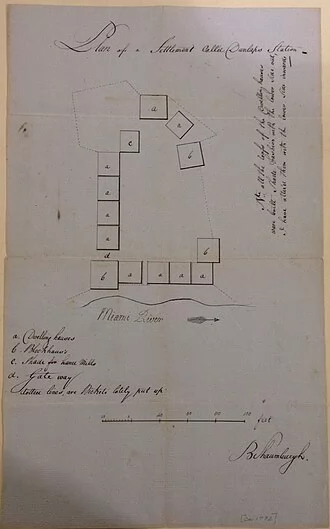 Plan of a Settlement Called Dunlaps Station
Nb. all the roofs of the Dwelling houses
were built Shade fashion with the lower side out,
I have altered them with the lower side inwards
a
a
c
b
a
a
a
a
d
b
b
a
a
a
a
Miami River
a. Dwelling houses
b. Blockhouses
c. Shade for hand Mills
d. Gate way
dotted lines, are Pickets lately put up
feet
B Shaumburgh